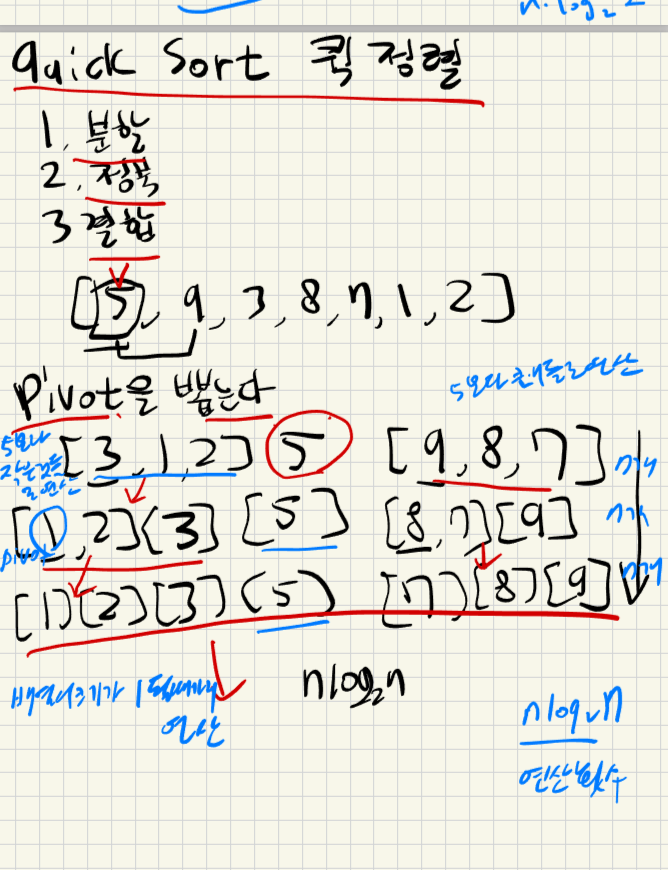 n·log₂
Quick Sort 퀵 정렬
1. 분할
2. 정복
3 결합
[5, 9, 3, 8, 7, 1, 2]
Pivot을 뽑는다
5보다 큰애들로 연산
5보다 작은것들로 연산
[3, 1, 2] 5 [9, 8, 7] n개
[1, 2][3] [5] [8, 7][9] n개
pivot
[1][2][3][5] [7][8][9] n개
배열 크기가 1 될때까지
연산
nlog₂n
nlog₂n
연산횟수